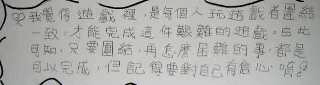 我覺得遊戲裡，是每個人玩遊戲者團結
一致，才能完成這件艱難的遊戲，由此
可知，只要團結，再怎麼困難的事，都是
可以完成，但記得要對自己有信心唷!